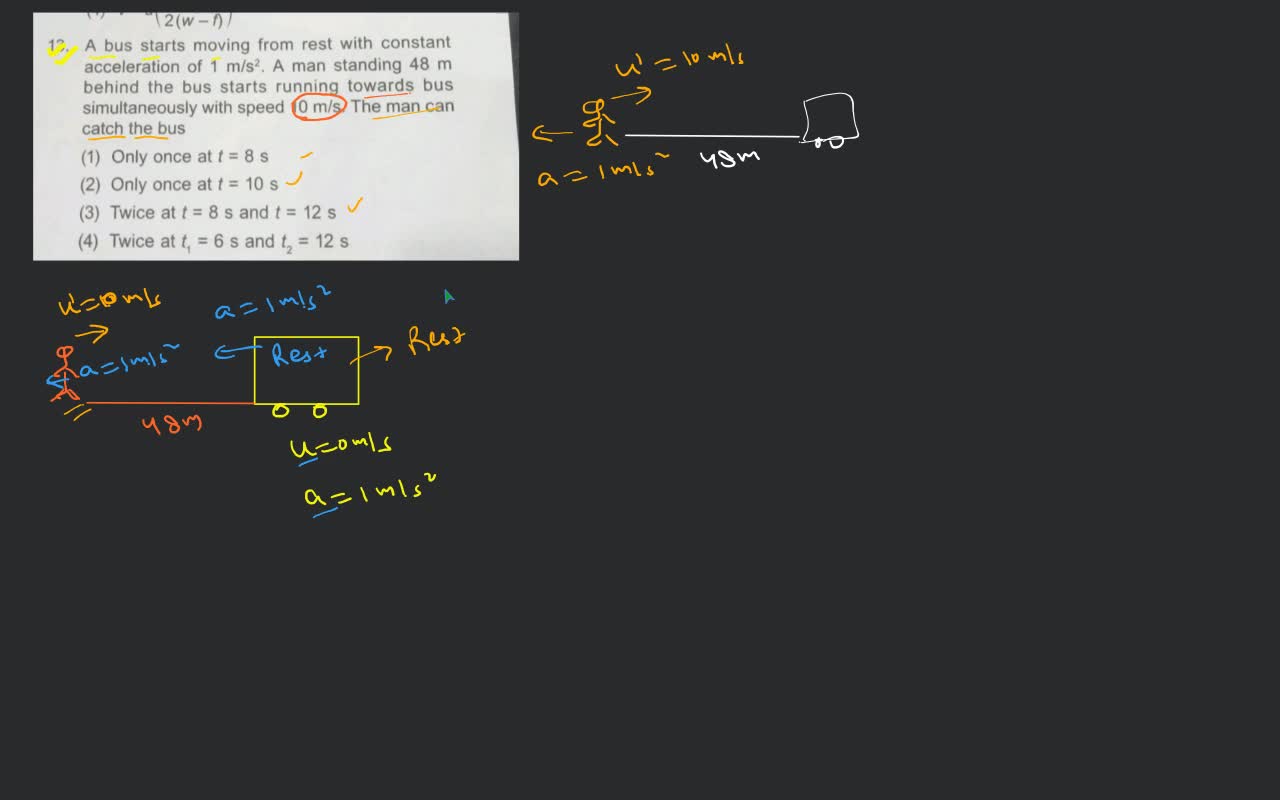 2(w – f)
13. A bus starts moving from rest with constant
acceleration of 1 m/s². A man standing 48 m
behind the bus starts running towards bus
simultaneously with speed 10 m/s. The man can
catch the bus
(1) Only once at t = 8 s
(2) Only once at t = 10 s
(3) Twice at t = 8 s and t = 12 s
(4) Twice at t₁ = 6 s and t₂ = 12 s
u' = 10 m/s
a = 1 m/s²
48m
u' = 10 m/s
a = 1 m/s²
a = 1 m/s²
Rest
Rest
48m
u = 0 m/s
a = 1 m/s²